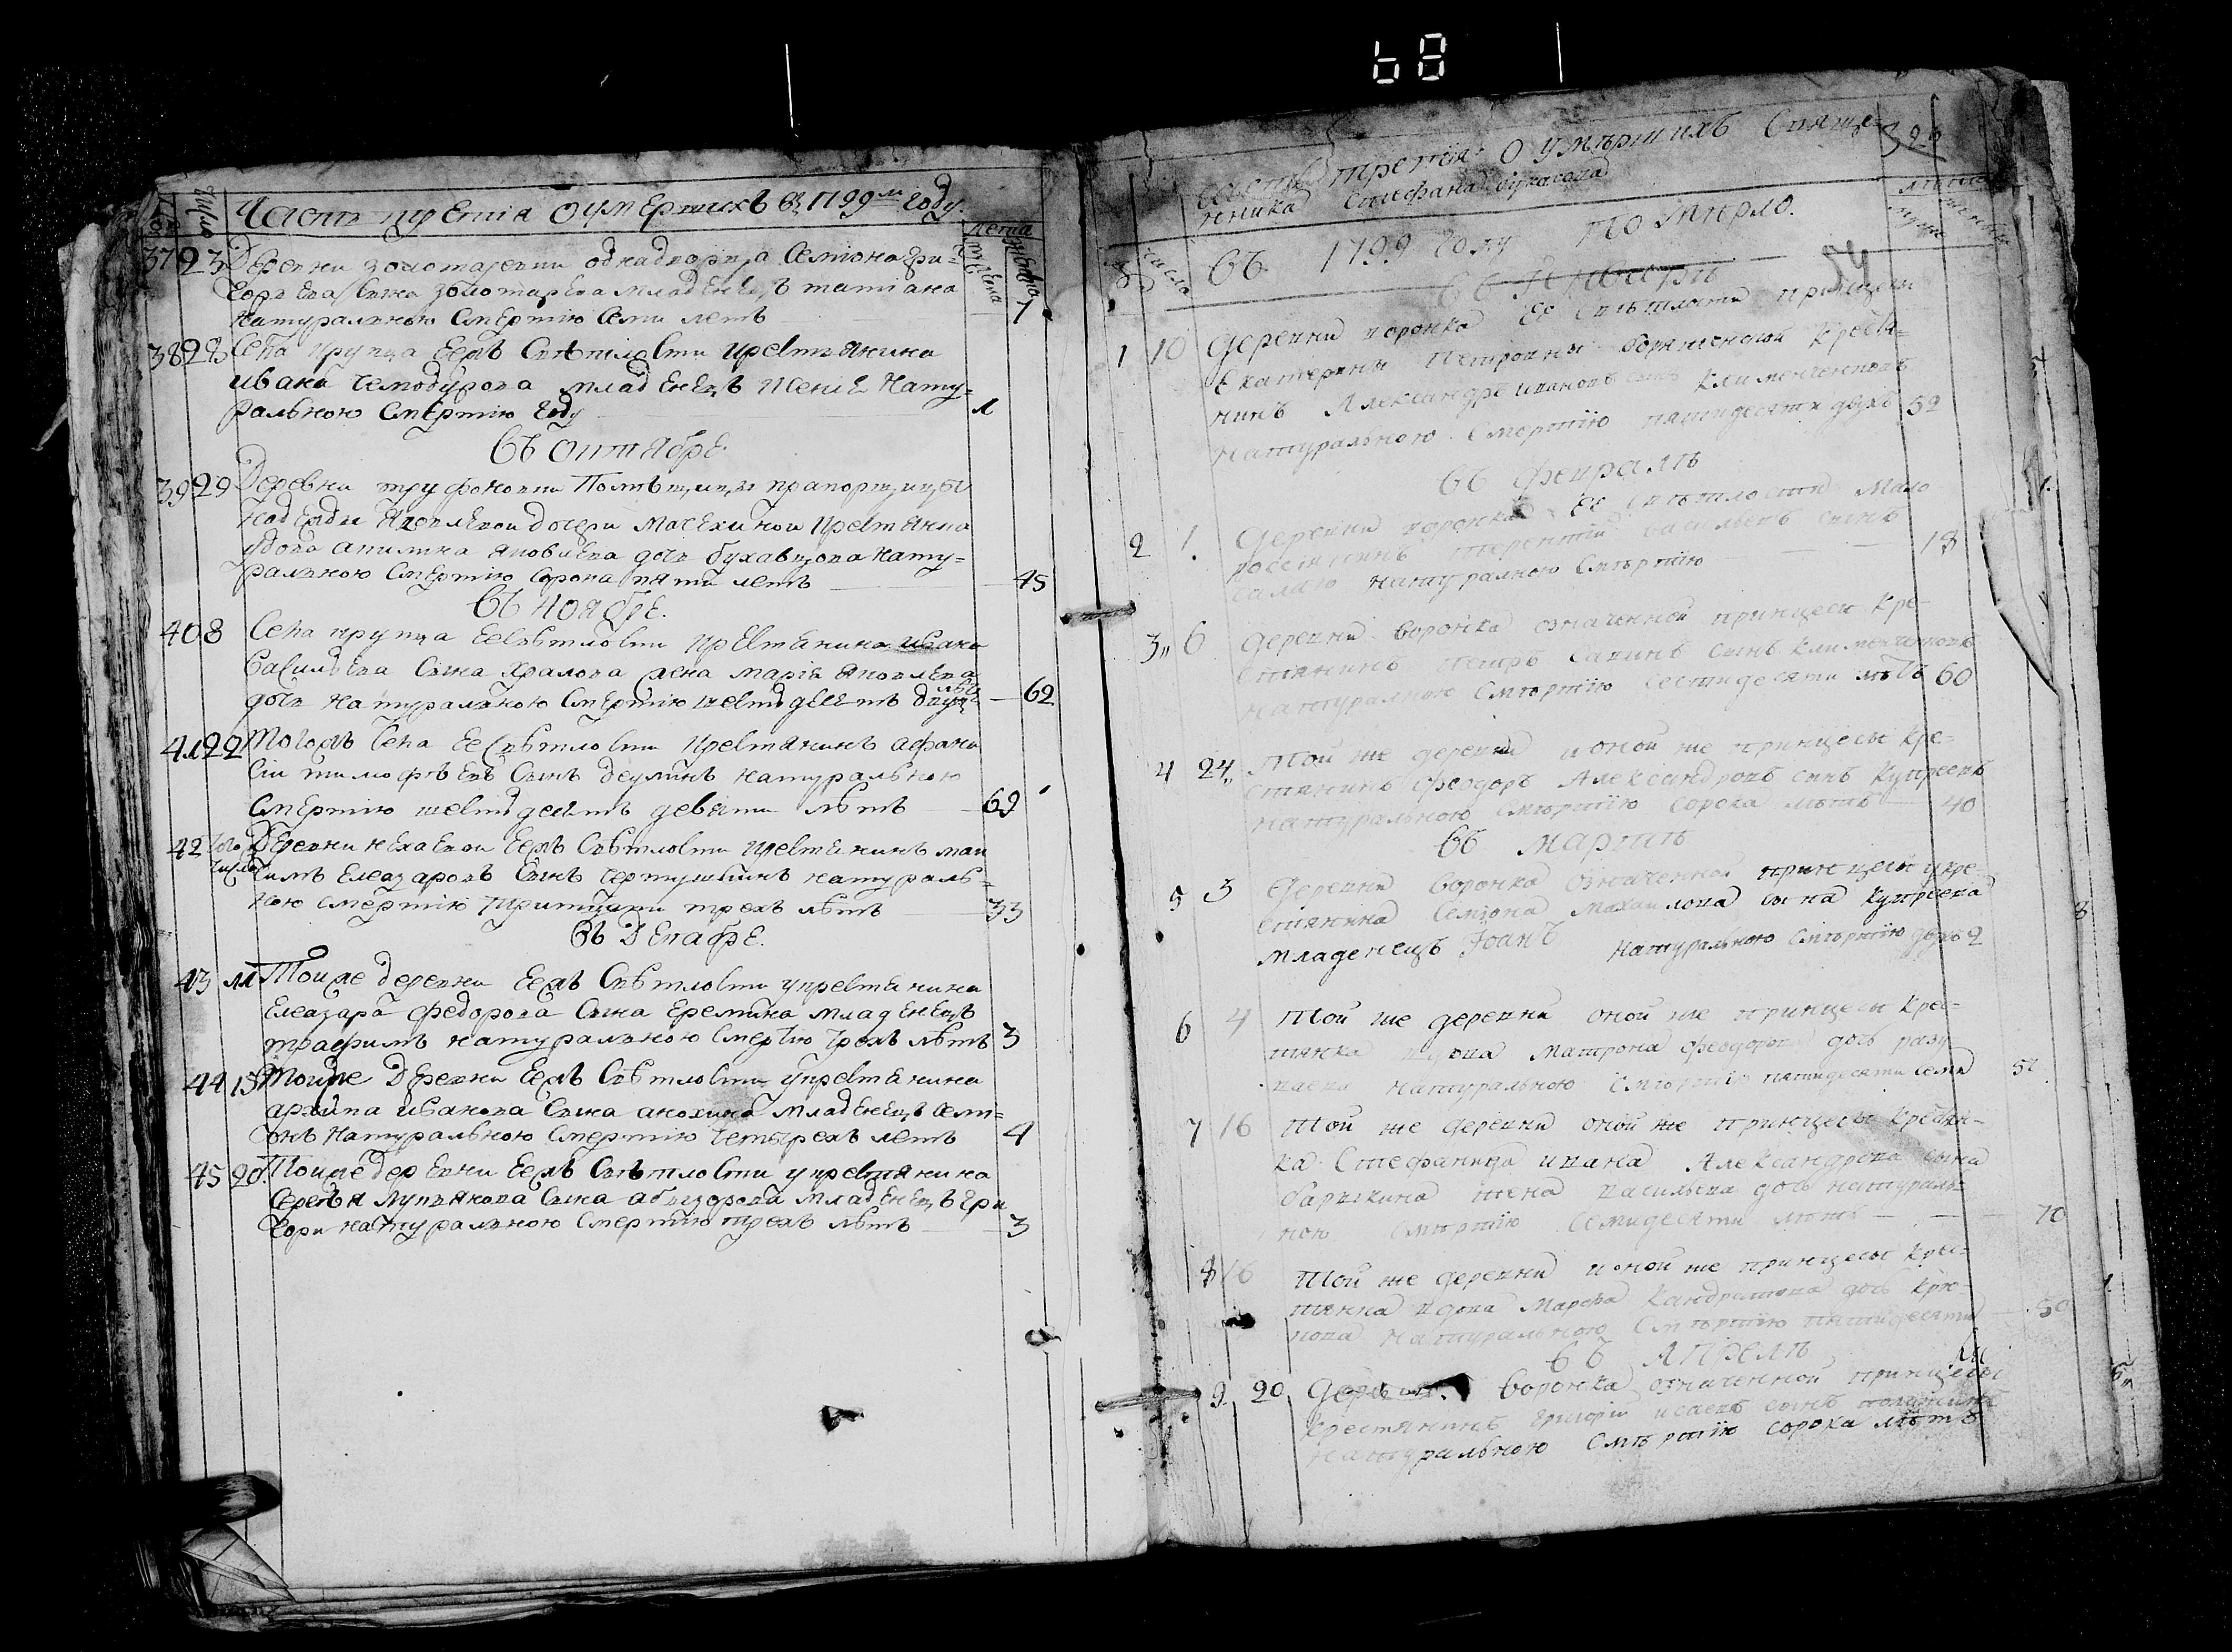 68
Часть третія О умершихъ въ 1799м году
число
лета
37 23 Деревни золотаревки однадворца Семіона гри-
горьева сына золотарева младенецъ татіана
натуральною смертію семи летъ 7
38 28 Села крупца Ееяъ Светлости крестьянина
ивана Чемодурова младенецъ Ксеніе нату-
ральною смертію году 1
въ октябре
39 29 Деревни труфоновки Помѣщицы прапорщицы
надежды яковлевои дочери Масехинои крестянка
удова акилина яковлева дочь бухавцова нату-
ральною смертію сорока пяти летъ 45
въ ноябре.
40 8 Села крупца Ее светлости крестянина ивана
Васильева сына храпова жена марія яковлева
дочь натуральною смертію шестьдесетъ двухъ летъ 62
41 22 Тогожъ села Ее светлости крестянинъ афана
сіи тимофѣевъ сынъ деулинъ натуральною
смертію шестьдесетъ девяти лѣтъ 69
42 того числа Деревни нехаевки Ееяъ Светлости крестянинъ мак
симъ Елеазаровъ сынъ чертушкинъ натураль-
ною смертію тритцати трехъ лѣтъ 33
въ Декабре.
43 11 Тоиже деревни Ееяъ Светлости укрестянина
Елеазара федорова сына Еремина младенецъ
трафимъ натуральною смертію трехъ лѣтъ 3
44 15 Тоиже Деревни Ееяъ Светлости укрестянина
архипа иванова сына анохина младенецъ семи-
онъ натуральною смертію четырехъ летъ 4
45 20 Тоиже деревни Ееяъ Светлости укрестянина
Сергѣя Лукьянова сына младенецъ гри
гори натуральною смертію трехъ лѣтъ 3
часть третія О умѣршихъ Свяще-
нника Стефана
въ 1799 году по мирло.
въ Генварѣ
54
1 10 Деревни воронка Ее Свѣтлости принцесы
Екатерины Петровны крестя-
нинъ Александръ ивановъ сынъ Клименченковъ
натуральною смертію пятидесяти двухъ 52
въ феврале
2 1 Деревни воронка Ее Свѣтлости мало
россіянинъ терентій васильевъ сынъ
натуральною смѣртію 18
3 6 Деревни воронка означенной принцесы кре-
стянинъ петръ савинъ сынъ клименченковъ
натуральною смѣртію сестидесяти лѣтъ 60
4 24 Той же деревни и оной же принцесы кре-
стянинъ феодоръ Александровъ сынъ купреевъ
натуральною смѣртію сорока лѣтъ 40
въ мартѣ
5 3 Деревни воронка означенной принцесы укре-
стянина Семіона Михаилова сына купреева
младенецъ Іоанъ натуральною смѣртію двухъ 2
6 4 Той же деревни оной же принцесы крес-
тянка вдова матрона феодорова дочь
натуральною смѣртію пятидесяти семи 57
7 16 Той же деревни оной же принцесы крестян-
ка Стефанида ивана Александрова сына
жена васильева дочь натураль-
ною смѣртію семидесяти лѣтъ 70
8 16 Той же деревни и оной же принцесы крес-
тянка вдова Марфа Кандратова дочь
натуральною смѣртію пятидесяти 50
въ Апрелѣ
9 20 Деревни воронка означенной принцесы
крестянинъ григорій исаевъ сынъ
натуральною смѣртію сорока лѣтъ